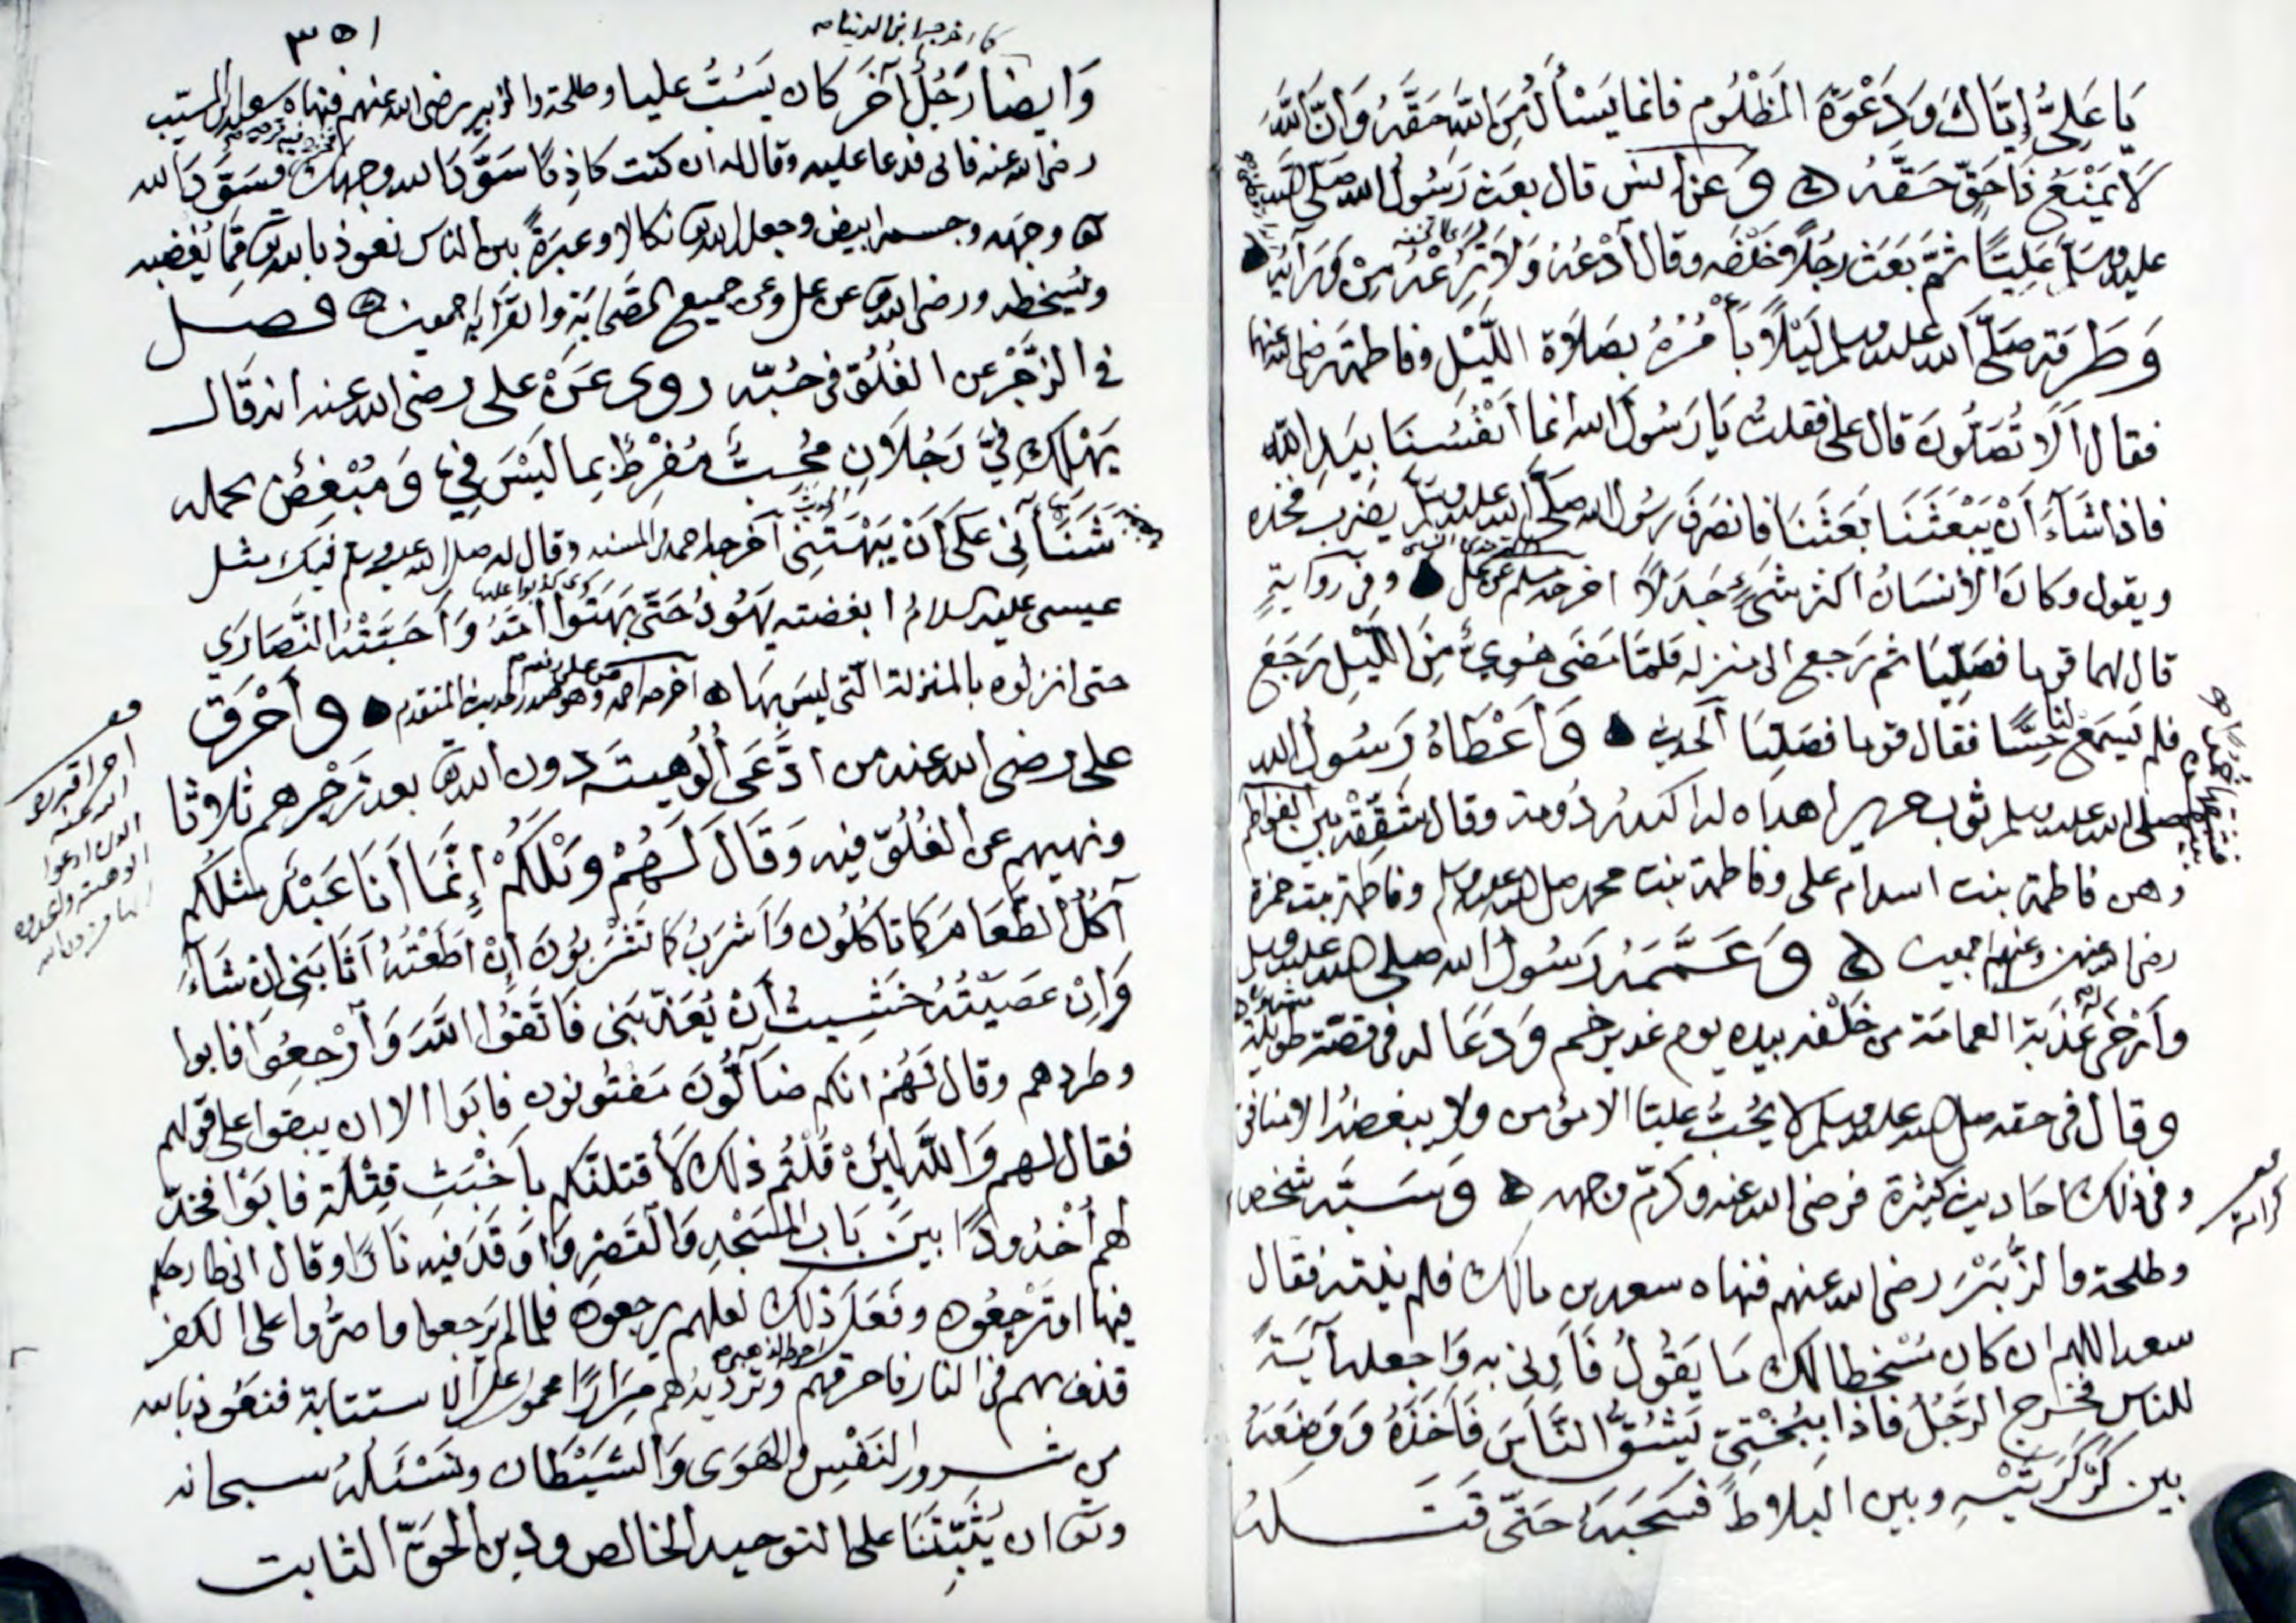 يَا عَلِيُّ إِيَّاكَ وَدَعْوَةَ المَظْلُومِ فانما يَسْأَلُ مِنَ اللهِ حَقَّهُ وَانَّ اللهَ
لَا يَمْنَعُ ذَا حَقٍّ حَقَّهُ ه وَعَنْ انس قال بعَثَ رَسُولُ الله صَلَّى الله
عليه وسلم عَلِيًّا ثُمَّ بَعَثَ رجُلًا خَلْفَه وقال أُدْعُهُ وَلَا تَرُعْهُ مِنْ وَرَائِهِ
وَطَرَقَه صَلَّى الله عليه وسلم لَيْلًا يَأْمُرُهُ بِصَلَاةِ اللَّيْلِ وفاطمة رضى الله عنهما
فقال أَلَا تُصَلُّونَ قال على فقلتُ يَا رَسُولَ الله انما أَنْفُسُنَا بِيَدِ اللهِ
فاذا شَآءَ أَنْ يَبْعَثَنَا بَعَثَنَا فانصَرَفَ رَسُولُ الله صَلَّى الله عليه وسلم يضرب فخذه
ويقول وكانَ الأنسَانُ اكثرَ شَىْءٍ جَدَلًا اخرجه مسلم عن على وفى روَايَةٍ
قال لهما قوما فصَلِّيَا ثم رَجع الى منزله فلمّا مَضَى هُوِيٌّ مِنَ اللَّيْلِ رَجَعَ
فلم يَسمَعْ لنا حِسًّا فقال قوما فصَلِّيَا الحديث وَأَعْطَاهُ رَسُولُ الله
صلى الله عليه وسلم ثوب حرير اهداه له اكيدر دُومة وقال شَقِّقْهُ بين الفواطم
وهن فاطمة بنت اسد ام على وفاطمة بنت محمد صلى الله عليه وسلم وفاطمة بنت حمزة
رضى الله عنهن وعنهم اجمعين ه وَعَمَّمَهُ رَسُولُ الله صلى الله عليه وسلم
وأرْخى عَذَبَةَ العمامَة من خَلْفه بيده يوم غدير خم وَدَعَا له فى قصّة طويلة
وقال فى حقه صلى الله عليه وسلم لا يُحبُّ عليّا الا مؤمن ولا يبغضهُ الا منافق
وفى ذلك احاديث كثيرة فرضى الله عنه وكرّم وجهه ه وَسَبَّه شخص
وطلحة والزُّبَيْرَ رضى الله عنهم فنهاه سعد بن مالك فلم ينته فقال
سعد اللهم ان كان مُسْخطا لك مَا يَقُولُ فَأَرِنى به وَاجعلها آيَةً
للناس فخَرج الرَّجُلُ فاذا بِبُخْتِيّ يَشُقُّ النَّاسَ فَأَخَذَهُ وَوَضَعَهُ
بين كَرْكَرَتَيْهِ وبين البَلاطِ فسَحَبَهُ حَتَّى قَتَلَهُ
كرامة
٣٥١
كما اخرجه ابن ابى الدنيا
وَايضا رَجُلٌ آخَرَ كان يَسُبُّ عليا وطلحة والزبير رضى الله عنهم فنهاه سعيد بن المسيب
رضى الله عنه فابى فدعا عليه وقال له ان كنت كاذِبًا سَوَّدَ الله وجهك فسَوَّدَ الله
وجهه وجسمه ابيض وجعله الله نكالا وعبرَةً بين الناس نعوذ بالله مِمَّا يُغضبه
ويُسخطه ورضى الله عن على وعن جميع الصَّحَابَة وَالقَرَابة اجمعين ه فصل
فى الزَّجْرِ عن الغُلُوّ فى حُبّه روى عَنْهُ على رضى الله عنه انه قَالَ
يَهْلكُ فِيَّ رَجُلَانِ مُحِبٌّ مُفْرِطٌ بِما لَيْسَ فِيَّ وَمُبْغِضٌ يحمله
شَنَآنِى عَلَى أَنْ يَبْهَتَنِى اخرجه احمد فى المسند وقال له صلى الله عليه وسلم فيك مثل
عيسى عليه السلام ابغضته يَهُودُ حَتَّى بَهَتُوا أُمَّهُ وَأَحَبَّتْهُ النَّصَارَى
حتى انزلوه بالمنزلة الّتى ليس بها ه اخرجه احمد وهو صدر الحديث المتقدم وَأَحْرَقَ
على رضى الله عنه من ادَّعَى أُلُوهيتَه دون الله بعد زَجْرهم ثلاثا
ونهيهم عن الغُلُوّ فيه وَقَالَ لَهُمْ وَيْلَكُمْ إِنَّمَا أَنَا عَبْدٌ مثلكُم
آكُلُ الطَّعَامَ كَمَا تَأكُلُون وَأَشرَبُ كَمَا تَشْرَبُونَ إِنْ أَطَعْتُهُ أَثَابَنِى إن شَآءَ
وَإِنْ عَصَيْتُهُ خَشِيتُ أَنْ يُعَذِّبَنِى فَاتَّقُوا اللهَ وَأرْجِعُوا فابوا
وطردهم وقال لَهُمْ انكم ضَآلُّونَ مَفتُونُون فابَوا الا ان يبقوا على قولهم
فقال لهم وَاللهِ لَئِنْ قُلْتُم ذلك لَأَقتلنّكم بِأَخْبَثِ قِتْلَة فابَوْا فخدَّ
لهم أُخْدُودًا بَيْنَ بَابِ المَسْجِدِ وَالقَصْرِ وَاوقَدَ فيه نَارًا وقال انى طارحكم
فيها او تَرْجِعُون وفعَلَ ذلك لعلهم يرجعون فلما لم يَرجعوا واصرُّوا على الكفر
قذف بهم فى النار فاحرقهم وترديدُهم مِرَارًا محمول على الاستتابة فنعُوذ بالله
من شرور النَفْسِ والهَوَى وَالشَّيْطَان ونَسْئَلُهُ سبحانه
وتعالى ان يُثَبِّتَنَا على التوحيد الخالص ودين الحَقّ الثابت